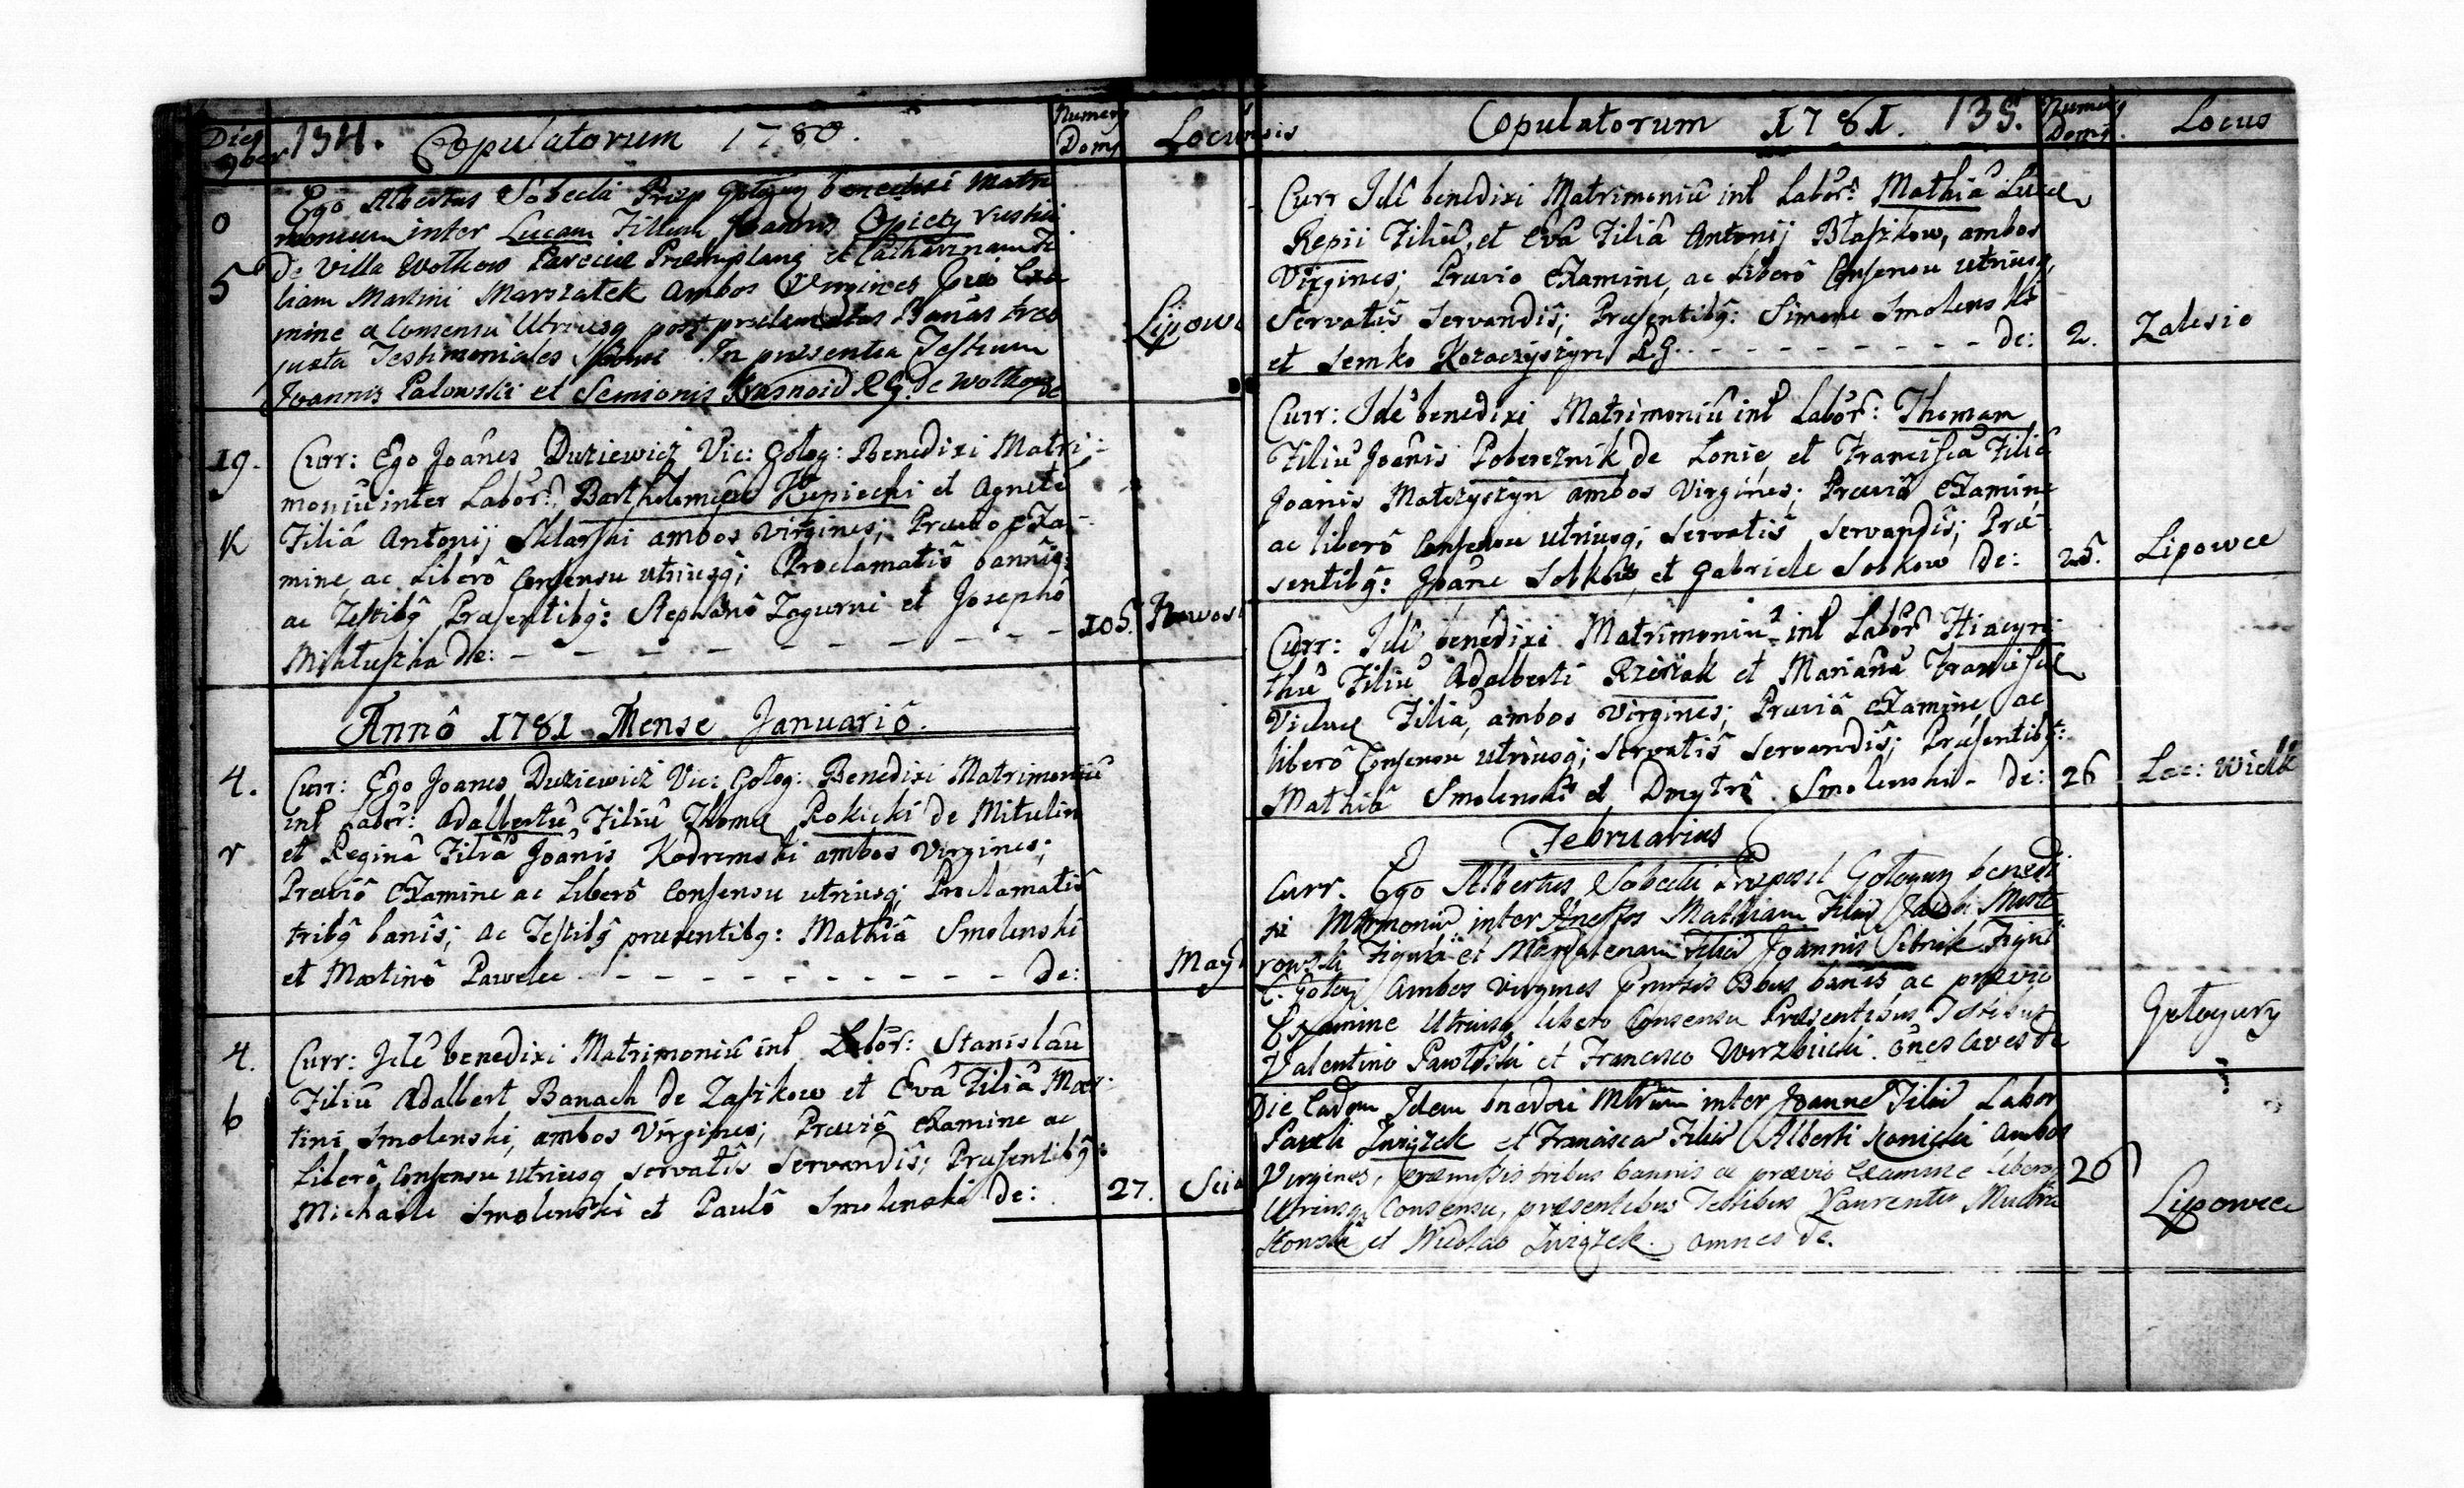 Dies 9ber 134. Copulatorum 1780. Numerg Domg Locus
0 Ego Albertus Sobecki Præp Gołogury benedixi Matri
monium inter Lucam Filium Joannis Opiety rustici
5 de Villa Wolkow Parociæ Præmyslany et Catharinam Fi
liam Martini Marszałek Ambos Virgines Prævio Exa
mine a Consensu Utriusq post proclamatas Banas tres
juxta Testimoniales In præsentia Testium
Joannis Palowski et Semionis Krasnoid RG. de Wolkow de Lipow
19. Curr: Ego Joânes Duziewicz Vic: Golog: Benedixi Matri-
moniû inter Labor: Bartholomeû Kupiecki et Agnetê
K Filiâ Antonij Sklarski ambos virgines; Prævio eXa-
mine, ac Liberô Consensu utriusq; Proclamatis bannis
ac Testibg Præsentibg: Stephanô Zagurni et Josephô
Mikłuszka de: - - - - - - - - - - 105. Nowos
Annô 1781 Mense Januariô.
4. Curr: Ego Joanes Duziewicz Vic: Golog: Benedixi Matrimoniû
int Labor: Adalbertû Filiû Thomæ Rokicki de Mitulin
r et Reginâ Filiâ Joânis Kodremski ambos virgines;
Præviô eXamine ac Liberô Consensu utriusq; Proclamatis
tribg banis; ac Testibg præsentibg: Mathiâ Smolenski
et Martinô Pawelec - - - - - - - - - - de: May
4. Curr: Idê benedixi Matrimoniû int Labor: Stanislaû
Filiû Adalbert Banach de Zaszkow et Evâ Filiâ Mar-
b tini Smolenski, ambos virgines; Præviô eXamine ac
Liberô Consensu utriusq servatis servandis; Præsentibg:
Michaele Smolenski et Paulô Smolenski de: 27. Scia
Copulatorum 1781. 135. Numerg Domg. Locus
Curr Idê benedixi Matrimoniû int Labor: Mathiâ Lucæ
Repii Filiû, et Evâ Filiâ Antonij Błaszkow, ambos
Virgines; Prævio eXamine, ac Liberô Consensu utriusq,
Servatis Servandis; Præsentibg: Simone Smolenski
et Semko Kozaczyszyn RG. - - - - - - - - - de: 2. Zalesie
Curr: Idê benedixi Matrimoniû int Labor: Thomam
Filiû Joânis Pobereznik de Lonie, et Franciscâ Filiâ
Joanis Matczyszyn ambos Virgines; Præviô eXamine
ac liberô Consensu utriusq; servatis servandis; Præ-
sentibg: Joâne Sobków, et Gabriele Sobkow de: 25. Lipowce
Curr: Idê benedixi Matrimoniû int Labor Hiacyn-
thû Filiû Adalberti Rzeszak et Mariânâ Francisci
Viduæ Filiâ, ambos virgines; Præviâ eXamine, ac
liberô Consensu utriusq; servatis servandis; Præsentibg:
Mathiâ Smolenski et Dmytrô Smolenski - de: 26 Lac: Wielk
Februarius
Curr. Ego Albertus Sobecki Præposit Gołogury benedi
xi Mtrimoniû inter Hnestos Mathiam Filiû Jacobi
rowski Figulâ et Magdalenam Filiâ Joannis Sitnik Figuli
C. Golog Ambos virgines Præmissis 3bus banis ac prævio
Examine Utriusq libero Consensu Præsentibus Testibus
Valentino Pawłoski et Francisco Wirzbicki. ônes cives de Gołogury
Die Eadem Idem bnedixi Mtrium inter Joannê Filiû Labor
Pauli Związek et Franciscâ Filiâ Alberti Konicki Ambos
Virgines, præmissis tribus bannis ac prævio Examine libero
Utriusq Consensu, præsentibus Testibus Laurentio
et Nicolao Związek. omnes de. 26 Lipowce